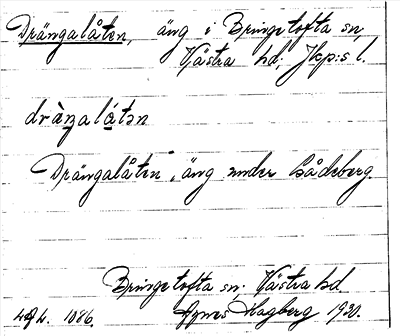 Drängalåten, äng i Bringetofta sn,
Västra hd, Jkp:s l.
dràŋalátən
Drängalåten", äng under Bådeberg.
Bringetofta sn. Västra hd.
1086. Agnes Hagberg 1930.